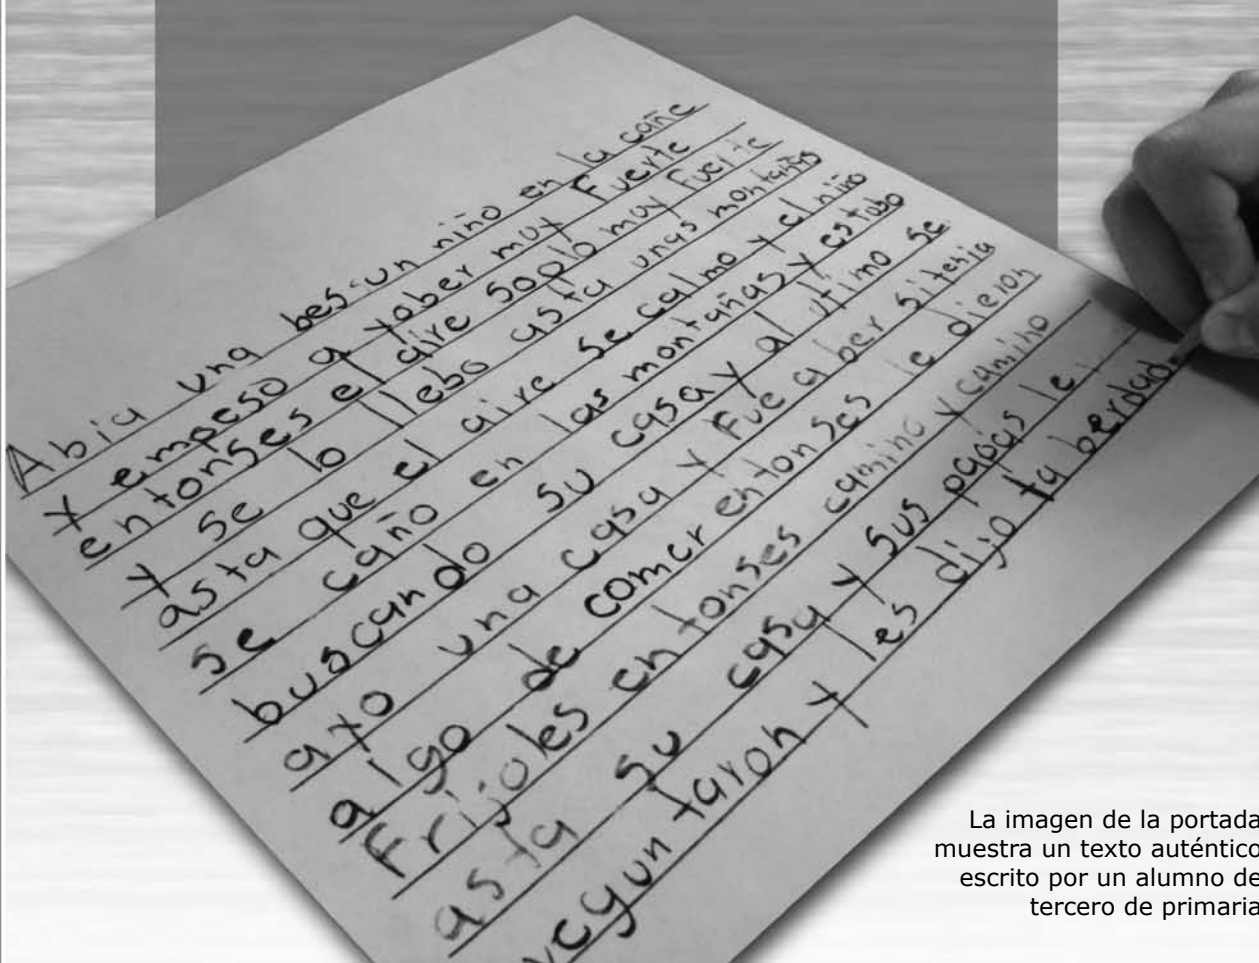 Abia una bes un niño en la cañe
y empeso a yober muy Fuerte
entonses el aire soplo muy fuerte
y se lo llebo asta unas montañas
asta que el aire se calmo y el niño
se caño en las montañas y estubo
buscando su casa y al utimo se
ayo una casa y fue a ber si tenia
algo de comer entonses le dieron
Frijoles entonses camino y camino
asta su casa y sus papás le
taron y les dijo la berdad.
La imagen de la portada
muestra un texto auténtico
escrito por un alumno de
tercero de primaria